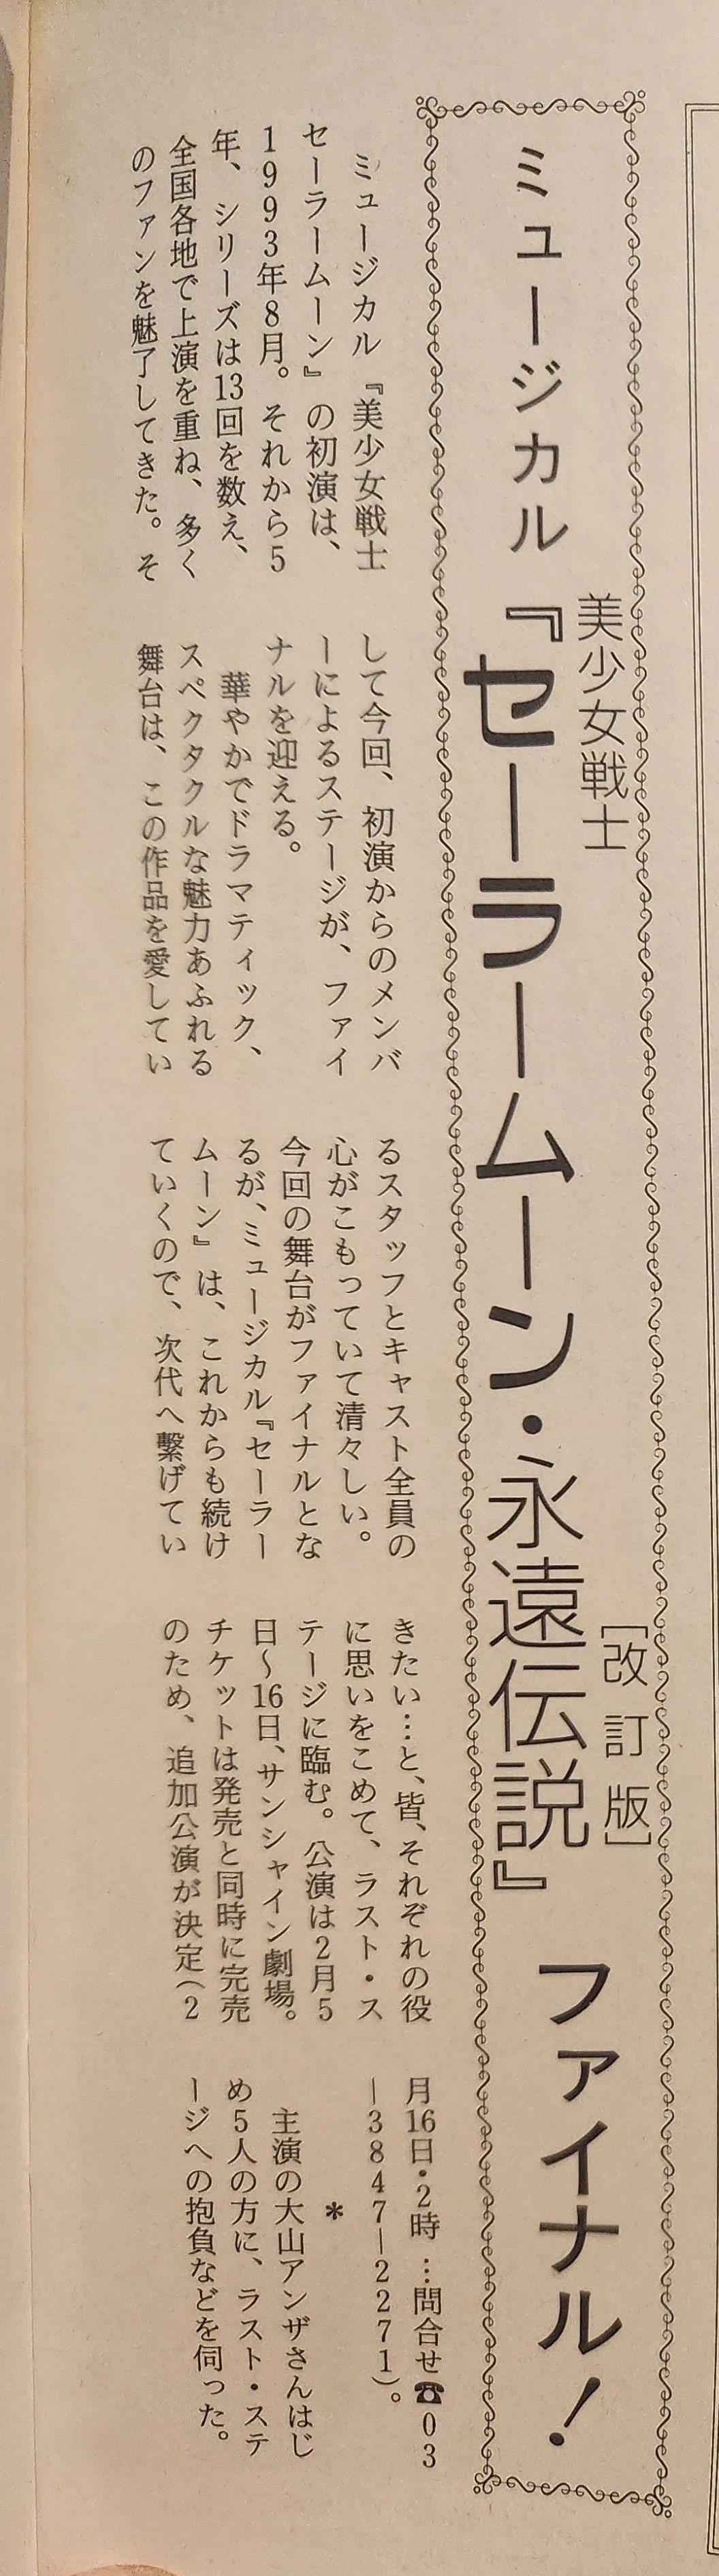 ミュージカル『美少女戦士セーラームーン・永遠伝説』[改訂版]ファイナル！
ミュージカル『美少女戦士
セーラームーン』の初演は、
1993年8月。それから5
年、シリーズは13回を数え、
全国各地で上演を重ね、多く
のファンを魅了してきた。そ
して今回、初演からのメンバ
ーによるステージが、ファイ
ナルを迎える。
華やかでドラマティック、
スペクタクルな魅力あふれる
舞台は、この作品を愛してい
るスタッフとキャスト全員の
心がこもっていて清々しい。
今回の舞台がファイナルとな
るが、ミュージカル『セーラー
ムーン』は、これからも続け
ていくので、次代へ繋げてい
きたい…と、皆、それぞれの役
に思いをこめて、ラスト・ス
テージに臨む。公演は2月5
日～16日、サンシャイン劇場。
チケットは発売と同時に完売
のため、追加公演が決定（2
月16日・2時…問合せ☎03
―3847―2271）。
＊
主演の大山アンザさんはじ
め5人の方に、ラスト・ステ
ージへの抱負などを伺った。